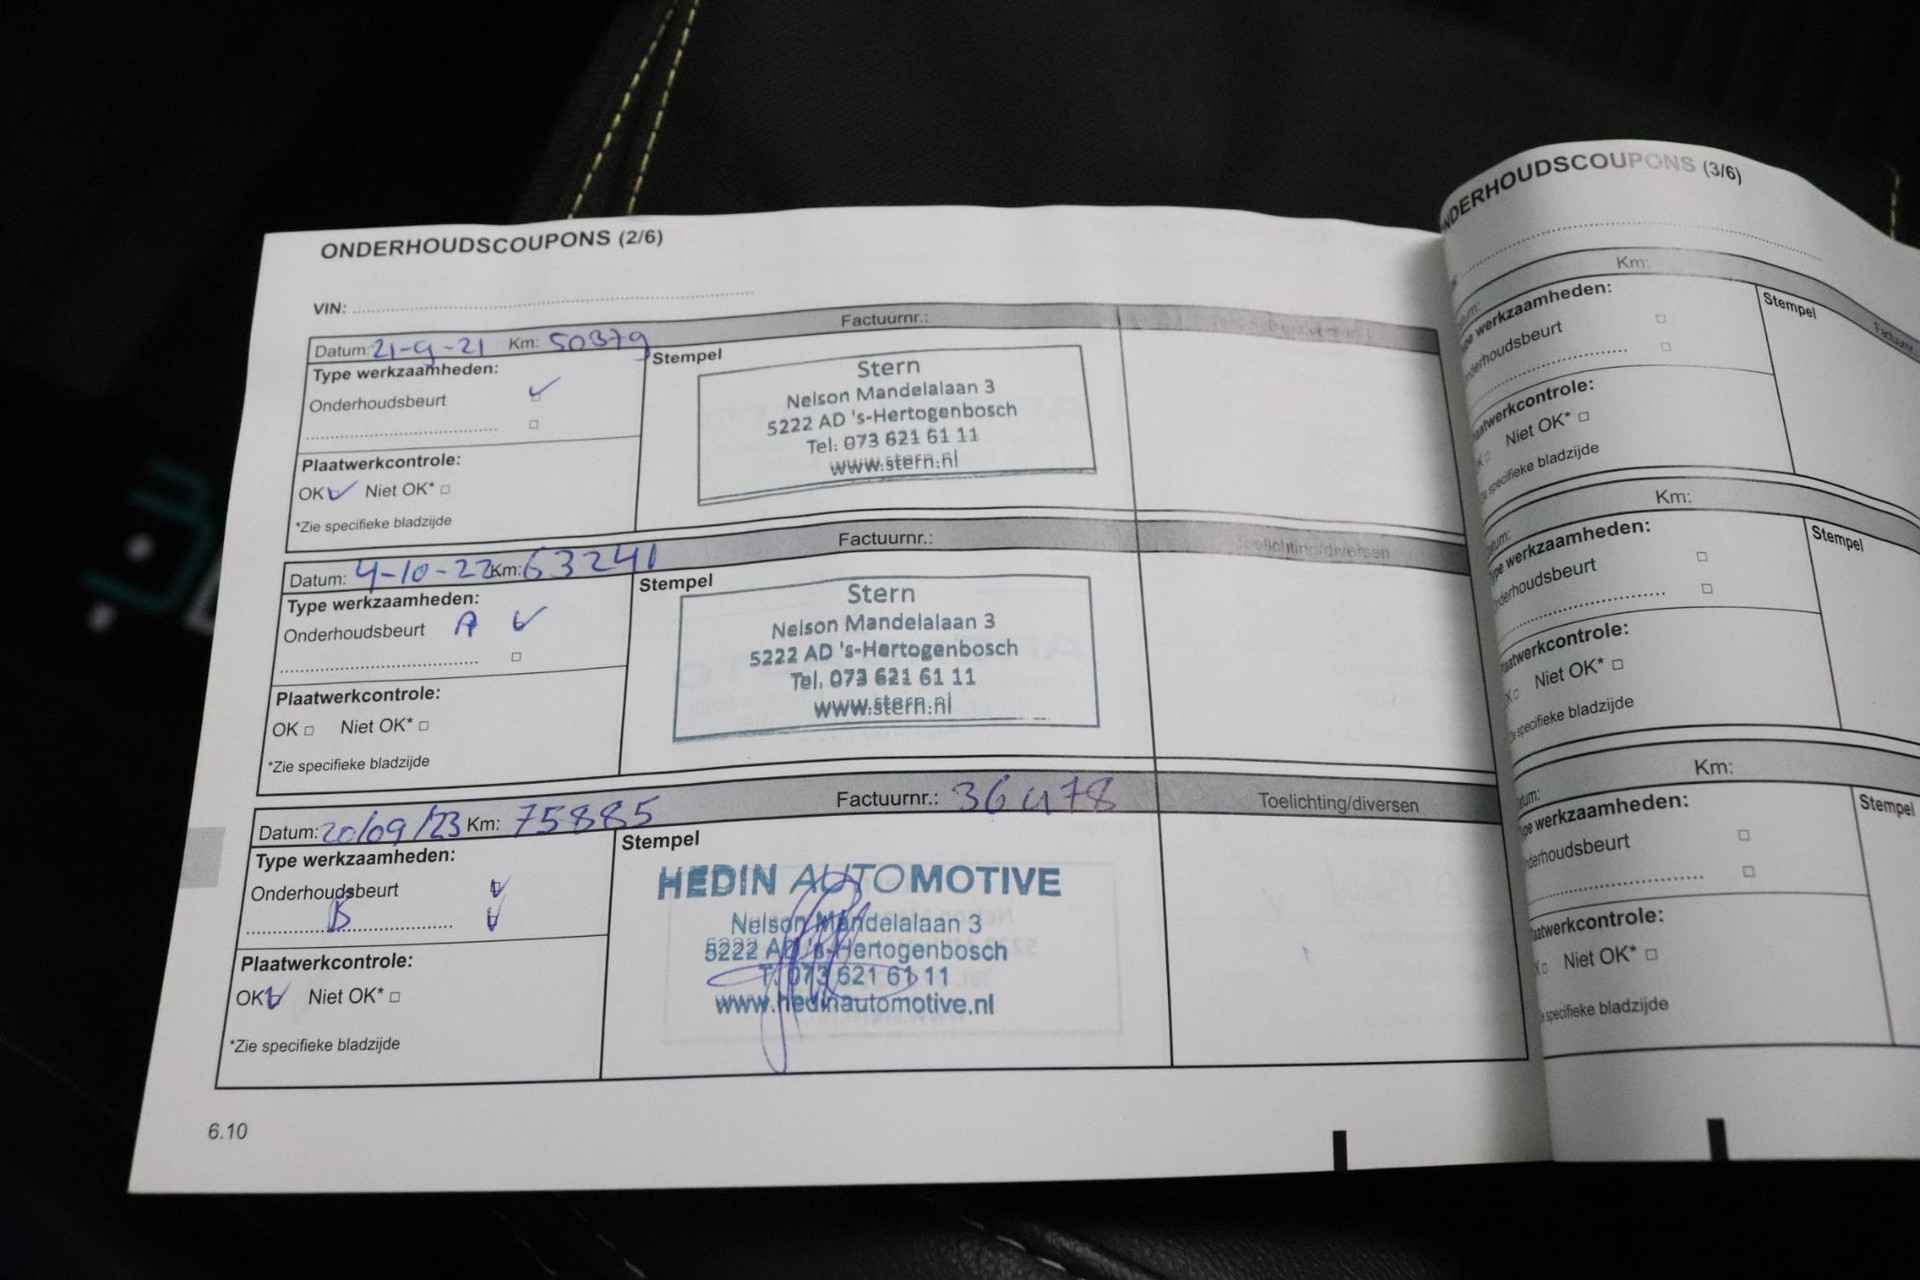 ONDERHOUDSCOUPONS (2/6)
VIN:
Factuurnr.:
Datum: 21-9-21 Km: 50379
Type werkzaamheden:
Onderhoudsbeurt
Plaatwerkcontrole:
OK Niet OK*
*Zie specifieke bladzijde
Stempel
Stern
Nelson Mandelalaan 3
5222 AD 's-Hertogenbosch
Tel. 073 621 61 11
www.stern.nl
Factuurnr.:
Toelichting/diversen
Datum: 4-10-22 Km: 63241
Type werkzaamheden:
Onderhoudsbeurt A
Plaatwerkcontrole:
OK Niet OK*
*Zie specifieke bladzijde
Stempel
Stern
Nelson Mandelalaan 3
5222 AD 's-Hertogenbosch
Tel. 073 621 61 11
www.stern.nl
Factuurnr.: 36478
Toelichting/diversen
Datum: 20/09/23 Km: 75885
Type werkzaamheden:
Onderhoudsbeurt
B
Plaatwerkcontrole:
OK Niet OK*
*Zie specifieke bladzijde
Stempel
HEDIN AUTOMOTIVE
Nelson Mandelalaan 3
5222 AD 's-Hertogenbosch
T. 073 621 61 11
www.hedinautomotive.nl
6.10
NDERHOUDSCOUPONS (3/6)
Km:
Factuurnr.
werkzaamheden:
derhoudsbeurt
Stempel
aatwerkcontrole:
Niet OK*
specifieke bladzijde
Km:
werkzaamheden:
derhoudsbeurt
Stempel
aatwerkcontrole:
Niet OK*
specifieke bladzijde
Km:
werkzaamheden:
derhoudsbeurt
Stempel
aatwerkcontrole:
Niet OK*
specifieke bladzijde